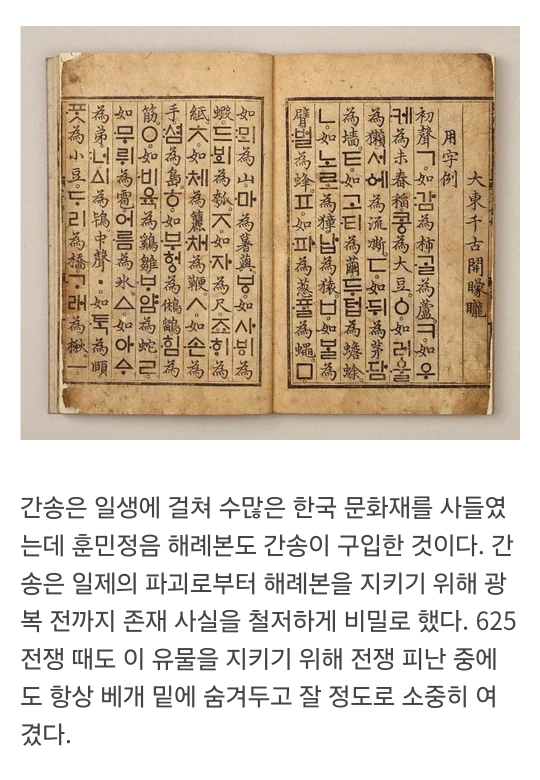 大東千古開矇矓
用字例
初聲ㄱ。如감為柿。ᄀᆞᆯ為蘆。ㅋ。如우
케為未舂稻。콩為大豆。ㆁ。如러울
為獺。서에為流凘。ㄷ。如뒤為茅。담
為墻。ㅌ。如고티為繭。두텁為蟾蜍。
ㄴ。如노로為獐。납為猿。ㅂ。如ᄇᆞᆯ為
臂。벌為蜂。ㅍ。如파為葱。ᄑᆞᆯ為蠅。ㅁ
如뫼為山。마為薯藇。ㅸ。如사ᄫᅵ為
蝦。드ᄫᅴ為瓠。ㅈ。如자為尺。죠ᄒᆡ為
紙。ㅊ。如체為籭。채為鞭。ㅅ。如손為
手。셤為島。ㅎ。如부헝為鵂鶹。힘為
筋。ㅇ。如비육為鷄雛。ᄇᆞ얌為蛇。ㄹ
如무뤼為雹。어름為氷。ㅿ。如아ᅀᆞ
為弟。너ᅀᅵ為鴇。中聲ㆍ。如ᄐᆞᆨ為頤
ᄑᆞᆺ為小豆。ᄃᆞ리為橋。ᄀᆞ래為楸。ㅡ
간송은 일생에 걸쳐 수많은 한국 문화재를 사들였
는데 훈민정음 해례본도 간송이 구입한 것이다. 간
송은 일제의 파괴로부터 해례본을 지키기 위해 광
복 전까지 존재 사실을 철저하게 비밀로 했다. 625
전쟁 때도 이 유물을 지키기 위해 전쟁 피난 중에
도 항상 베개 밑에 숨겨두고 잘 정도로 소중히 여
겼다.